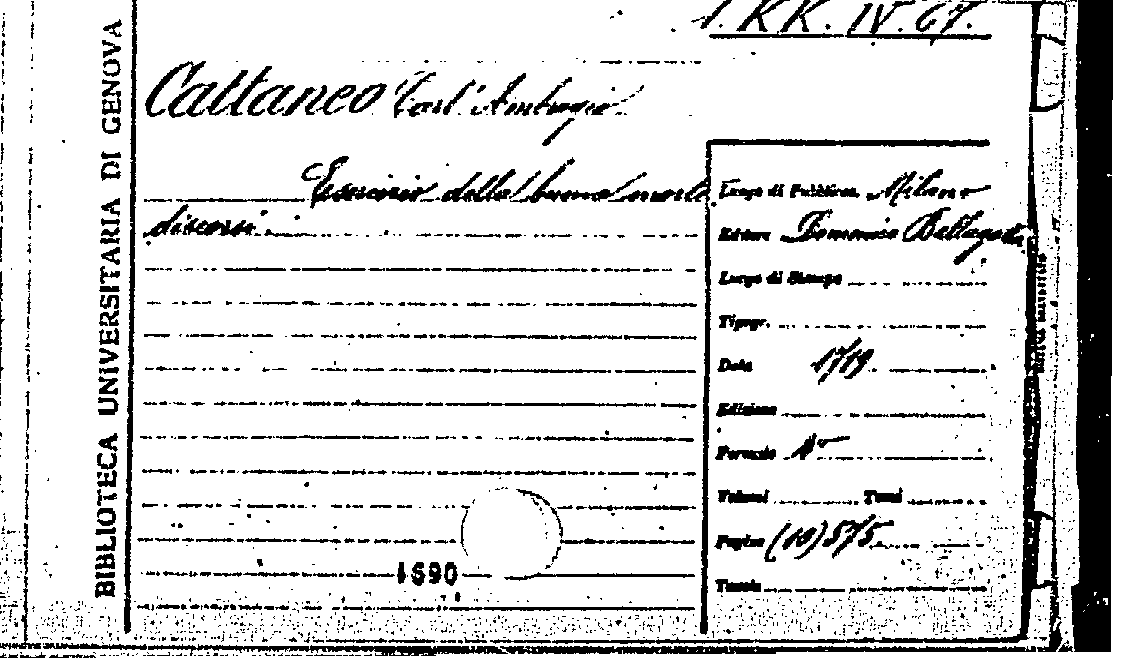 1. KK. IV. 67.
Cattaneo Carl' Ambrogio
Esercizio della buona morte
discorsi.
BIBLIOTECA UNIVERSITARIA DI GENOVA
Luogo di Pubblicaz. Milano
Editore Domenico Bellagatta
Luogo di Stampa
Tipogr.
Data 1719.
Edizione
Formato
Volumi Tomi
Pagine (10) 575
Tavole
1590